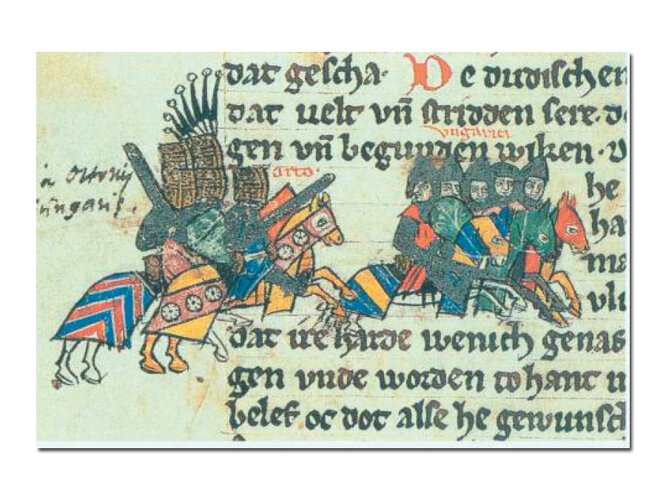 dat gescha. De dudischen
dat velt vn̄ stridden sere. d
ungarici
gen vn̄ begunden wiken. v
otto.
he
ha
ma
vli
dat ire harde wenich genas
gen vnde worden to hant
belef oc dot alse he gewunsch